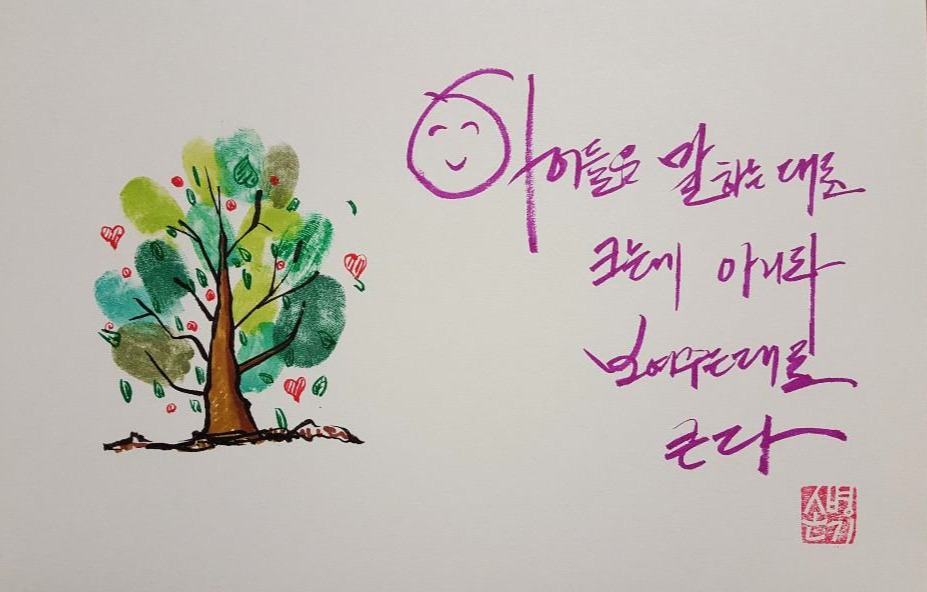 아이들은 말하는 대로
크는게 아니라
보여주는대로
큰다
손병기